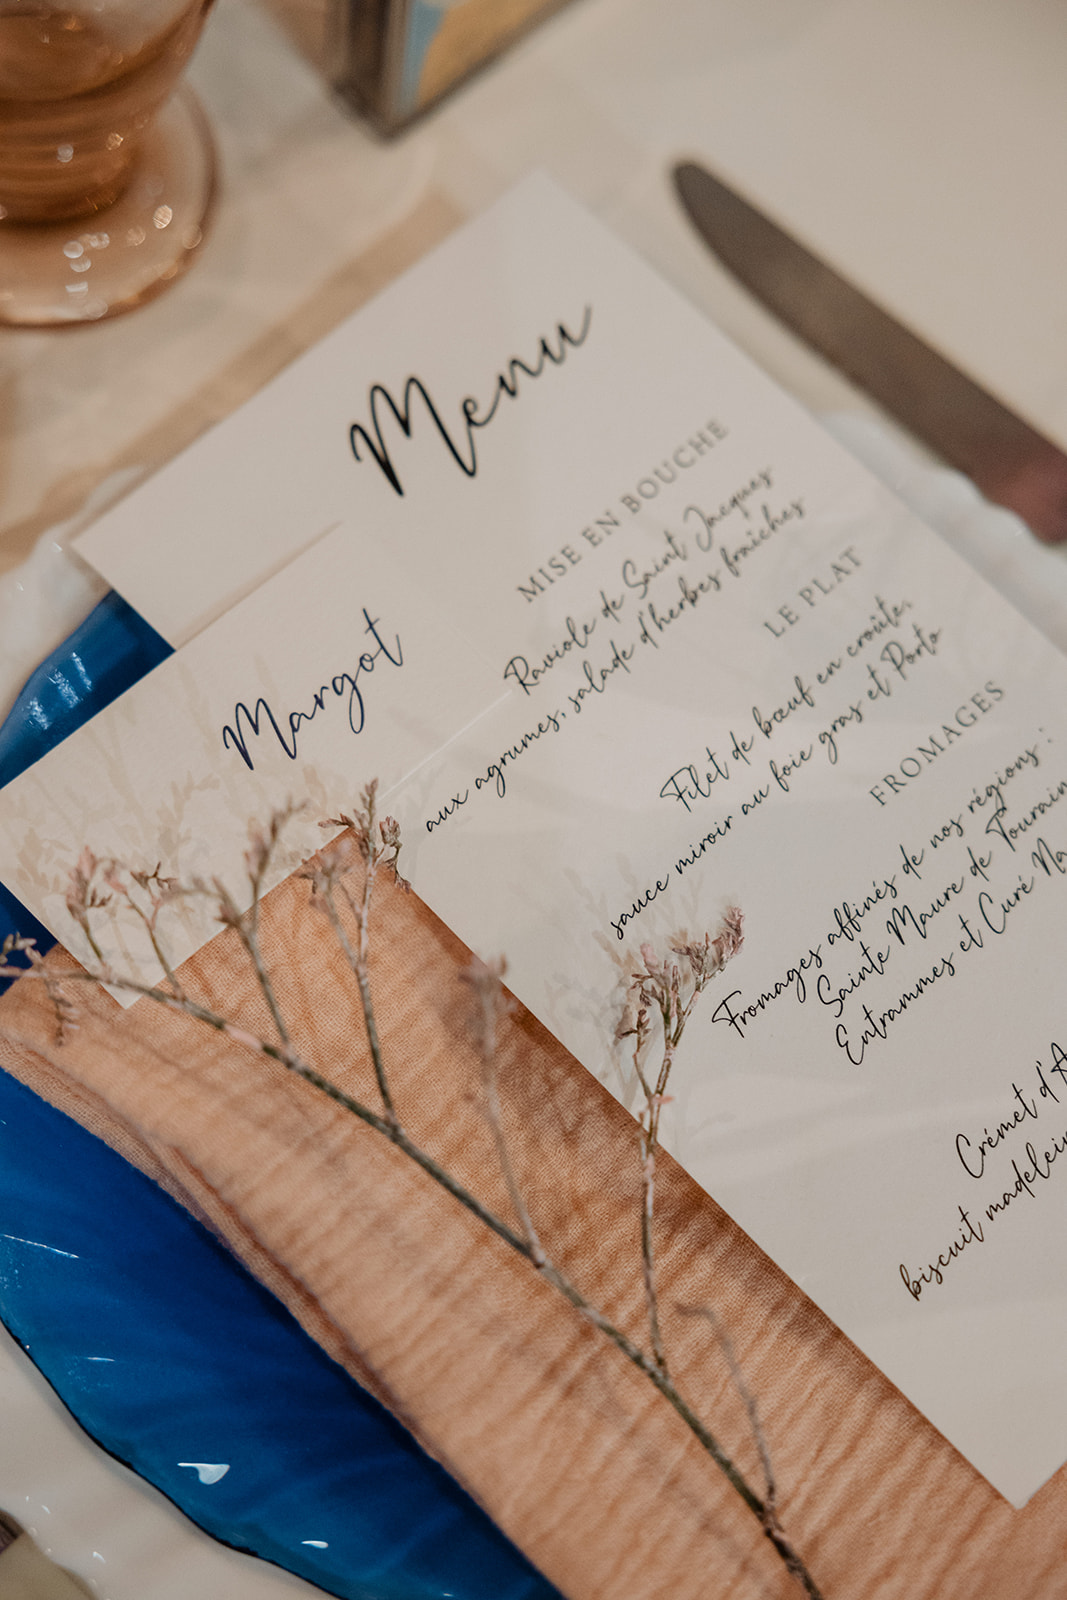 Menu
Margot
MISE EN BOUCHE
Raviole de Saint Jacques
aux agrumes, salade d'herbes fraîches
LE PLAT
Filet de bœuf en croûte,
sauce miroir au foie gras et Porto
FROMAGES
Fromages affinés de nos régions :
Sainte Maure de Tourain
Entrammes et Curé Na
Crémet d'A
biscuit madelein